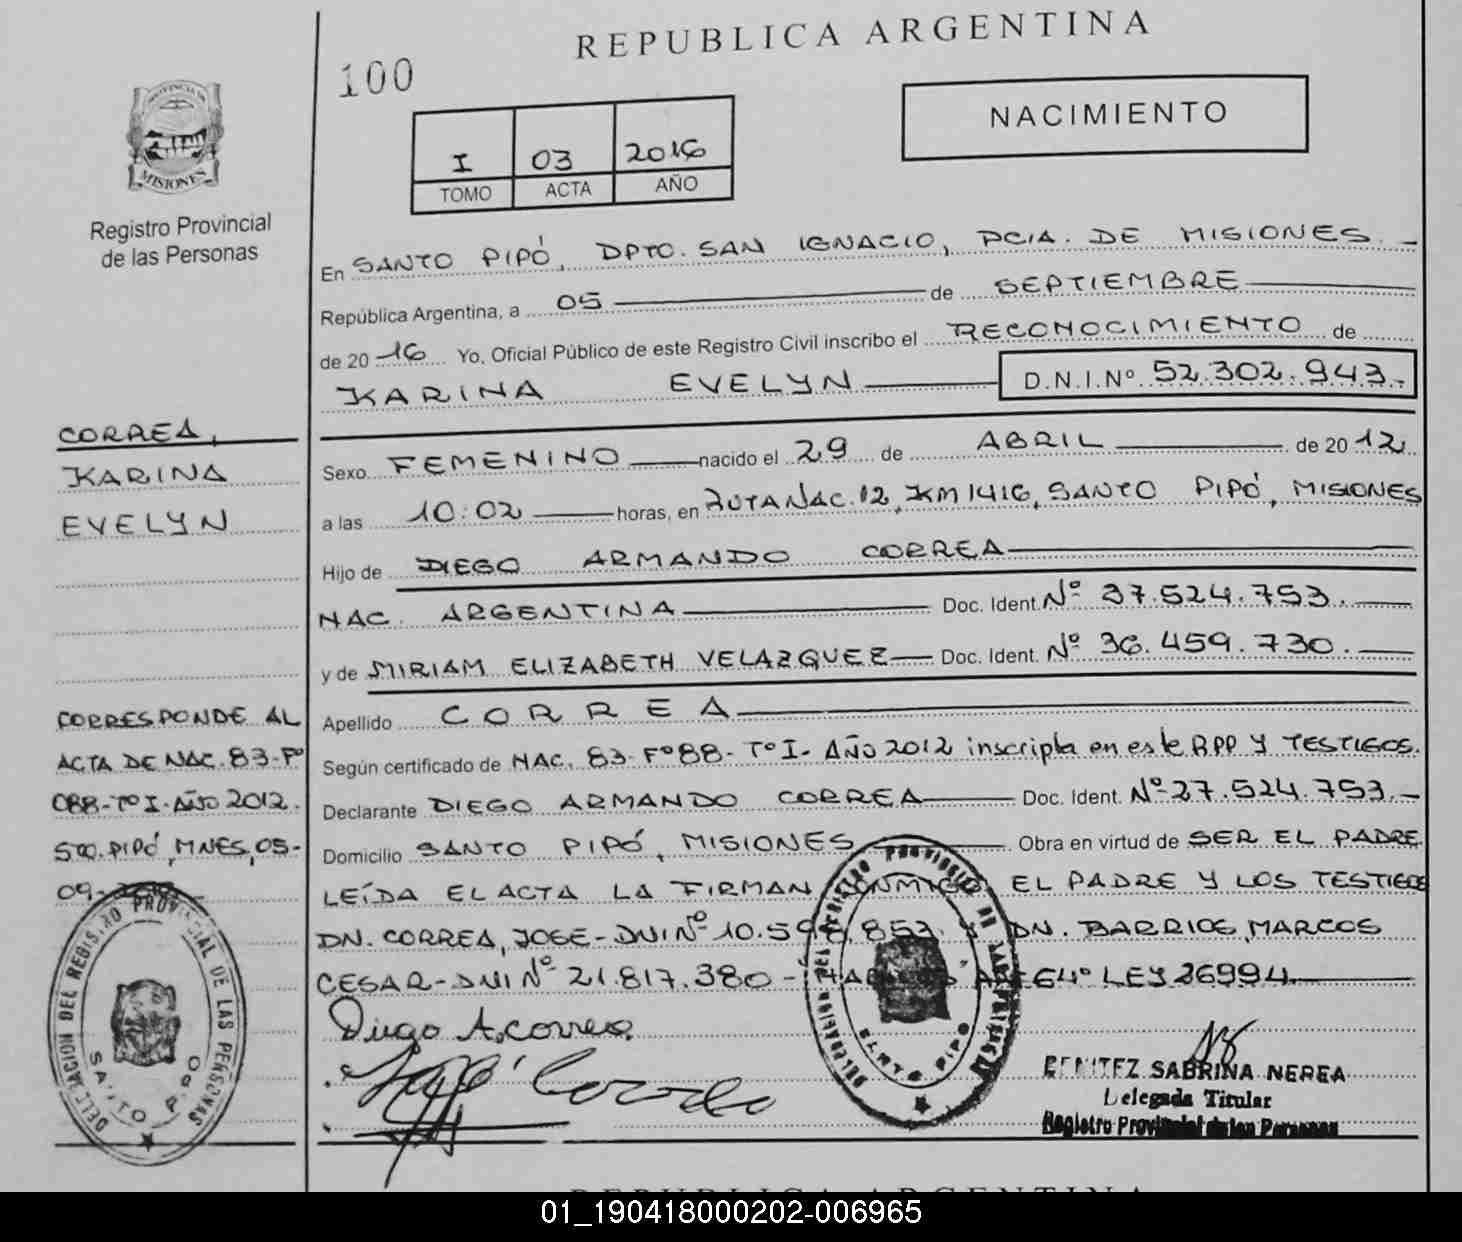 REPUBLICA ARGENTINA
100
NACIMIENTO
PROVINCIA DE
MISIONES
Registro Provincial
de las Personas
I 03 2016
TOMO ACTA AÑO
En SANTO PIPÓ, DPTO. SAN IGNACIO, PCIA. DE MISIONES.-
República Argentina, a 05 de SEPTIEMBRE
de 20 16 Yo, Oficial Público de este Registro Civil inscribo el RECONOCIMIENTO de
KARINA EVELYN D.N.I.Nº 52.302.943.-
CORREA,
KARINA
EVELYN
Sexo FEMENINO nacido el 29 de ABRIL de 20 12
a las 10:02 horas, en RUTA NAC. 12, KM 1416, SANTO PIPÓ, MISIONES
Hijo de DIEGO ARMANDO CORREA
NAC. ARGENTINA Doc. Ident. Nº 37.524.753.
y de MIRIAM ELIZABETH VELAZQUEZ Doc. Ident. Nº 36.459.730.
Apellido CORREA
Según certificado de NAC. 83-Fº88-TºI-AÑO 2012 inscripta en este RPP Y TESTIGOS.
Declarante DIEGO ARMANDO CORREA Doc. Ident. Nº27.524.753.-
Domicilio SANTO PIPÓ, MISIONES Obra en virtud de SER EL PADRE
LEÍDA EL ACTA LA FIRMAN CONMIGO EL PADRE Y LOS TESTIGOS
DN. CORREA, JOSE-DNI Nº 10.598.853. Y DN. BARRIOS, MARCOS
CESAR-DNI Nº 21.817.380- 64º LEY 26994.
CORRESPONDE AL
ACTA DE NAC. 83-Fº
088-TºI-AÑO 2012.
STO. PIPÓ, MNES, 05-
09-
DELEGACION DEL REGISTRO PROVINCIAL DE LAS PERSONAS
SANTO PIPO
Diego A. Correa
José Correa
DELEGACION DEL REGISTRO PROVINCIAL DE LAS PERSONAS
SANTO PIPO
BENITEZ SABRINA NEREA
Delegada Titular
Registro Provincial de las Personas
REPUBLICA ARGENTINA
01_190418000202-006965